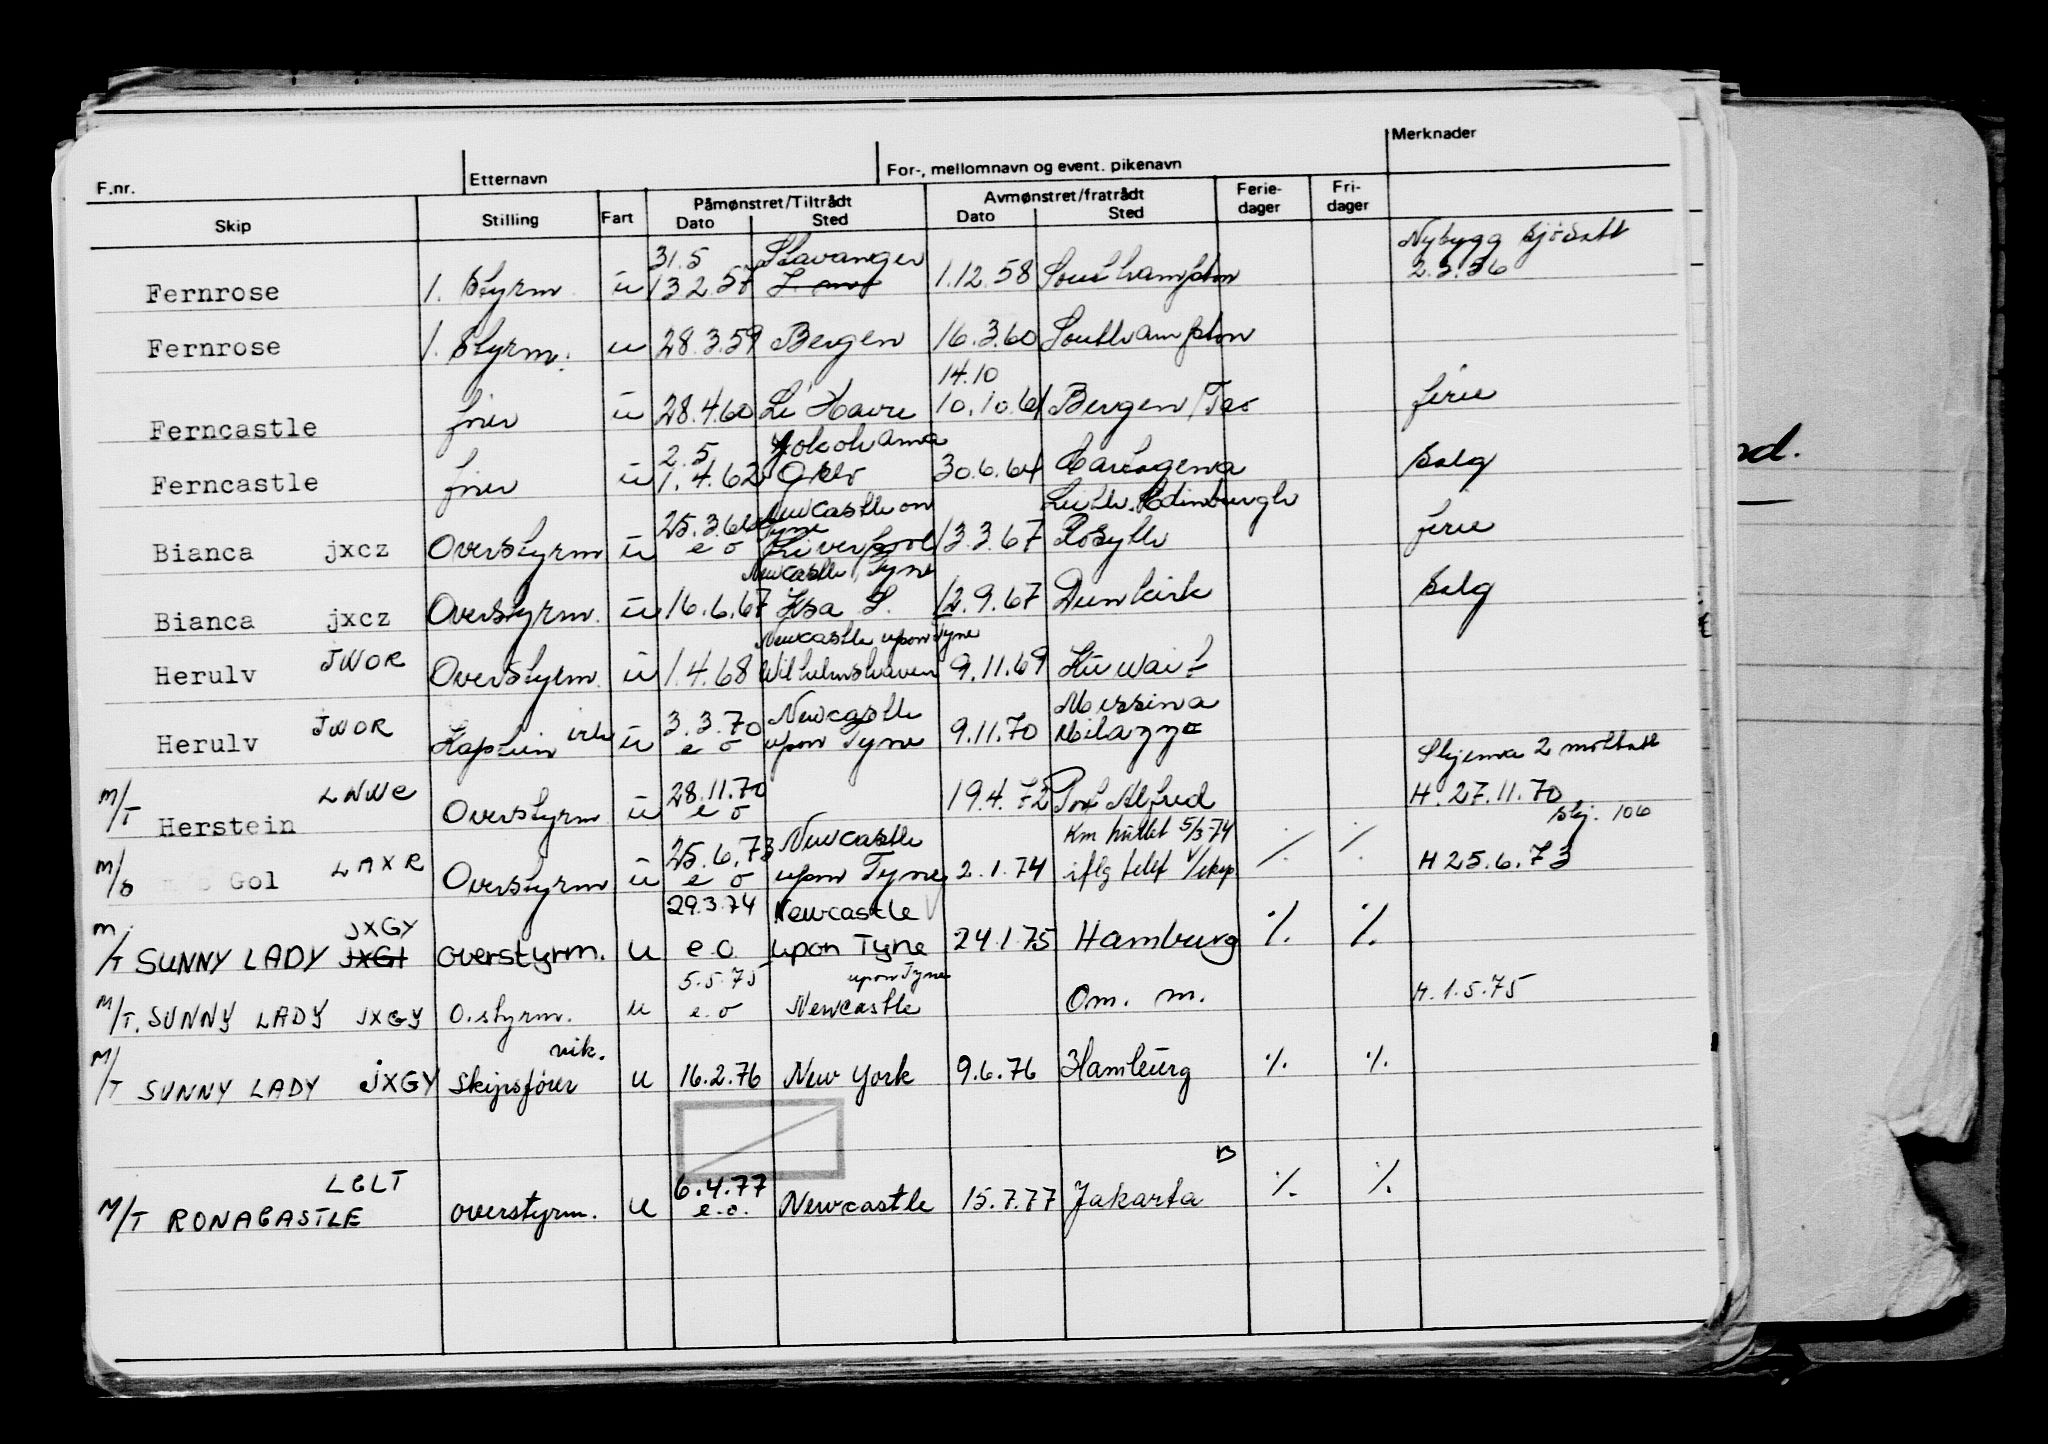 F.nr. Etternavn For-, mellomnavn og event. pikenavn Merknader
Skip Stilling Fart Påmønstret/Tiltrådt Dato Sted Avmønstret/fratrådt Dato Sted Ferie-dager Fri-dager
31.5 Stavanger Nybygg sjøsatt
Fernrose 1. Styrm u 13 2.57 1.12.58 Southampton
Fernrose 1. Styrm. u 28.3.59 Bergen 16.3.60 Southampton
14.10
Ferncastle fører u 28.4.60 Le Havre 10.10.61 Bergen/Tao ferie
2.5 Yokohama
Ferncastle fører u 1.4.62 Oslo 30.6.64 Cartagena Salg
25.3.66 Newcastle on Tyne Leith. Edinburgh
Bianca jxcz Overstyrm u e o Liverpool 13.3.67 Rosyth ferie
Newcastle, Tyne
Bianca jxcz Overstyrm. u 16.6.67 12.9.67 Dunkirk Salg
Newcastle upon Tyne
Herulv JWOR Overstyrm. u 1.4.68 Wilhelmshaven 9.11.69 Kuwait
3.3.70 Newcastle Messina
Herulv JWOR Kaptein u e o upon Tyne 9.11.70 Milazzo
Skjema 2 mottatt
M/T Herstein LNWC Overstyrm u 28.11.70 e o 19.4.72 Port Alfred H. 27.11.70
Skj. 106
25.6.73 Newcastle Km hullet 5/3-74
M/S Gol LAXR Overstyrm u e o upon Tyne 2.1.74 iflg telef ./. ./. H 25.6.73
29.3.74 Newcastle
M/T SUNNY LADY JXGY JXGI overstyrm. u e.o upon Tyne 24.1.75 Hamburg ./. ./.
5.5.75 upon Tyne
M/T. SUNNY LADY JXGY O.styrm. u e.o Newcastle Om. m. H.1.5.75
vik.
M/T SUNNY LADY JXGY skipsfører u 16.2.76 New York 9.6.76 Hamburg ./. ./.
LCLT 6.4.77 B
M/T RONACASTLE overstyrm. u e.o. Newcastle 15.7.77 Jakarta ./. ./.